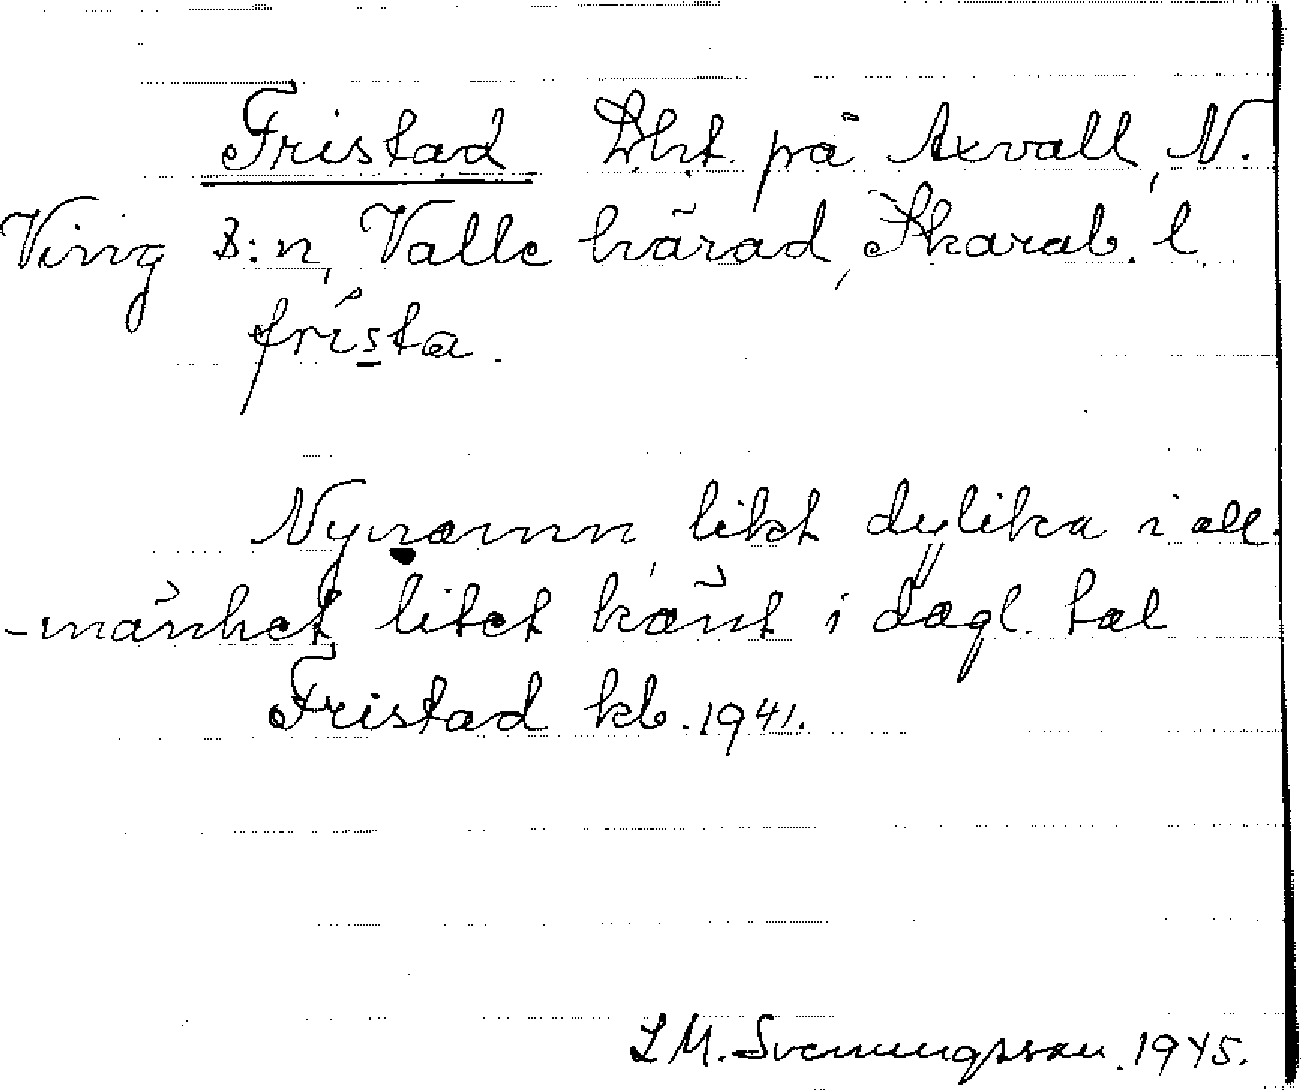 Fristad Lht på Axvall, N.
Ving s:n, Valle härad, Skarab. l.
frista.
Nynamn, likt dylika i all-
-mänhet litet känt i dagl. tal
Fristad kb. 1941.
L M. Svenungsson. 1945.